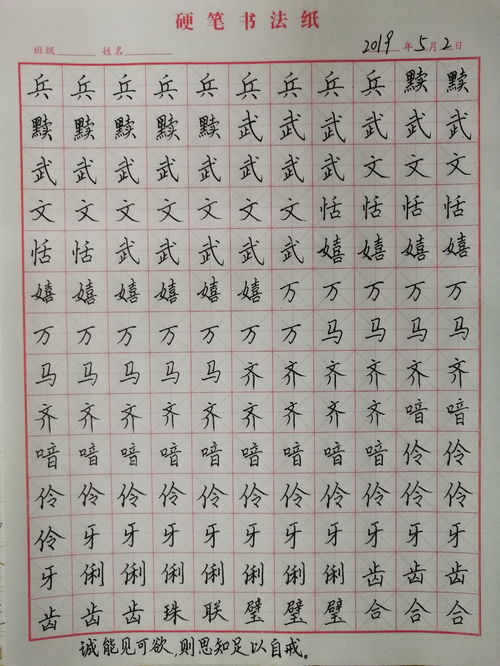 硬笔书法纸
班级 姓名 2019年5月2日
兵兵兵兵兵兵兵兵兵黩黩
黩黩黩黩黩武武武武武武
武武武武武武武武文文文
文文文文文文文恬恬恬恬
恬恬武武武武武嬉嬉嬉嬉
嬉嬉嬉嬉嬉嬉万万万万万
万万万万万万万马马马马
马马马马马齐齐齐齐齐齐
齐齐齐齐齐齐齐齐齐喑喑
喑喑喑喑喑喑喑喑喑伶伶
伶伶伶伶伶伶伶伶伶伶伶
伶牙牙牙牙牙牙牙牙牙牙
牙俐俐俐俐俐俐俐齿齿齿
齿齿齿珠联璧璧璧合合合
诚能见可欲,则思知足以自戒。